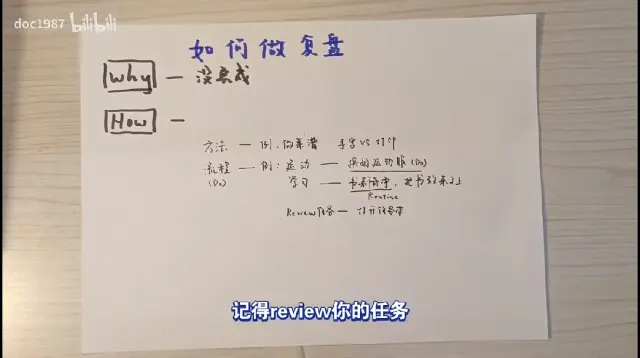 doc1987 bilibili
如何做复盘
Why — 没完成
How —
方法 — 例: 做菜谱 手写 VS 打印
流程 — 例: 运动 — 换好运动服 (Do)
(Do) 学习 — 书桌清空, 把书放桌上
Routine
Review任务 — 打开任务本
记得review你的任务